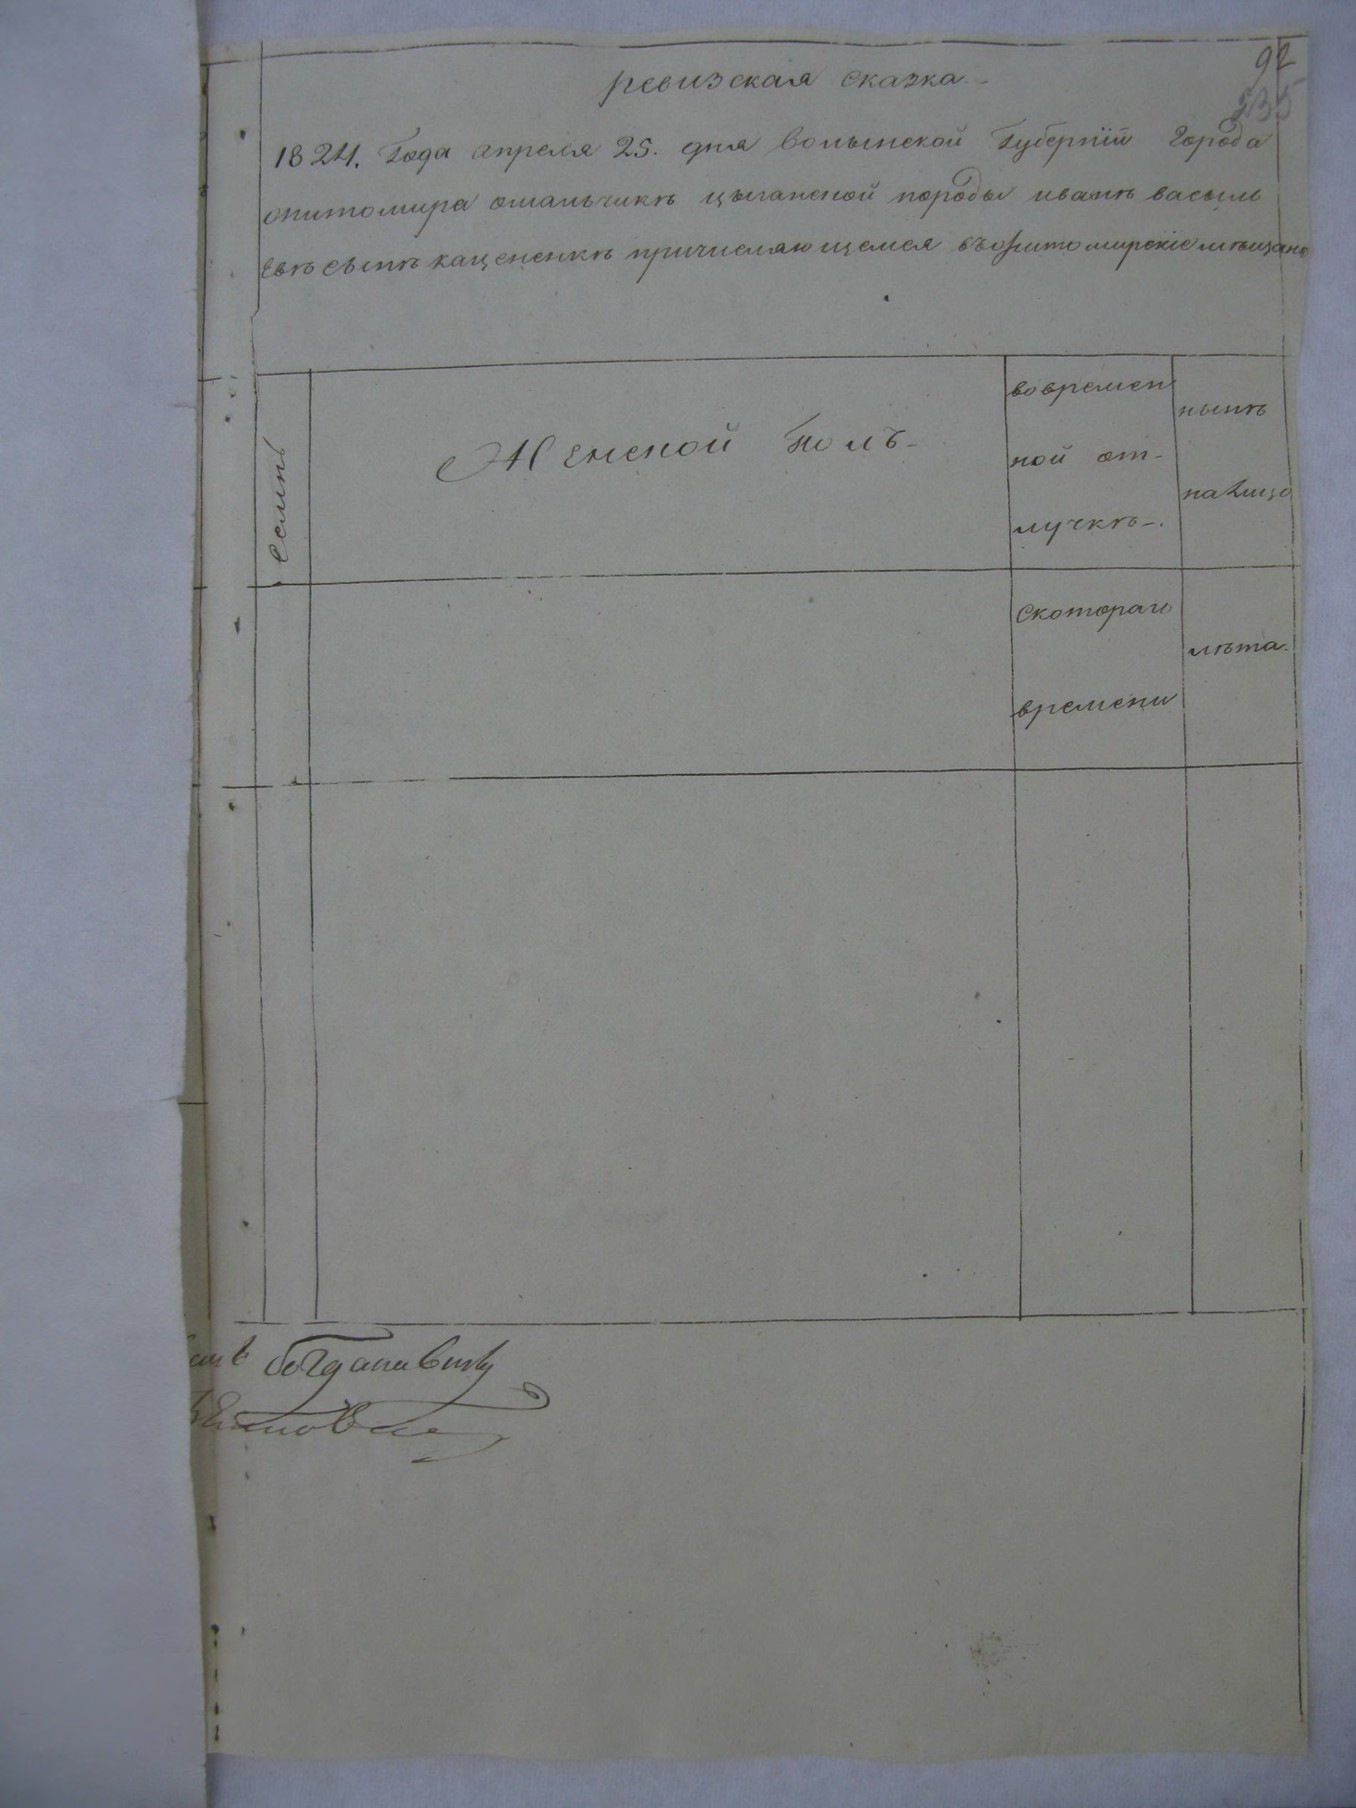 92
335
ревизская сказка.-
1824. Года апреля 25. дня волынской Губерніи Города
житомира омальчикѣ цыганской породы иванѣ василь
евѣ сынѣ кацененкѣ причисляющемся въжитомирскіе мѣщане
семьи
Женской полъ-
вовремен
ной от-
лучкѣ-.
нынѣ
налицо
скоторого
времени
лѣта.